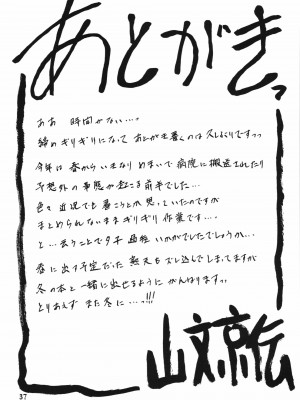 あとがきっ
ああ 時間がない…っ
締めギリギリになって あとがき書くのは久しぶりですっっ
今年は 春からいきなり めまいで 病院に搬送されたり
予想外の事態が起こる前半でした…
色々 近況でも 書こうとか思っていたのですが
まとめられないまま ギリギリ 作業です…。
と…言うことで タチ 過程 いかがでしたでしょうか…
春に出す予定だった 熟天も ズレ込んでしまってますが
冬の本と一緒に出せるように がんばりますっ。
とりあえず また冬に…っ!!!
山文京伝
37